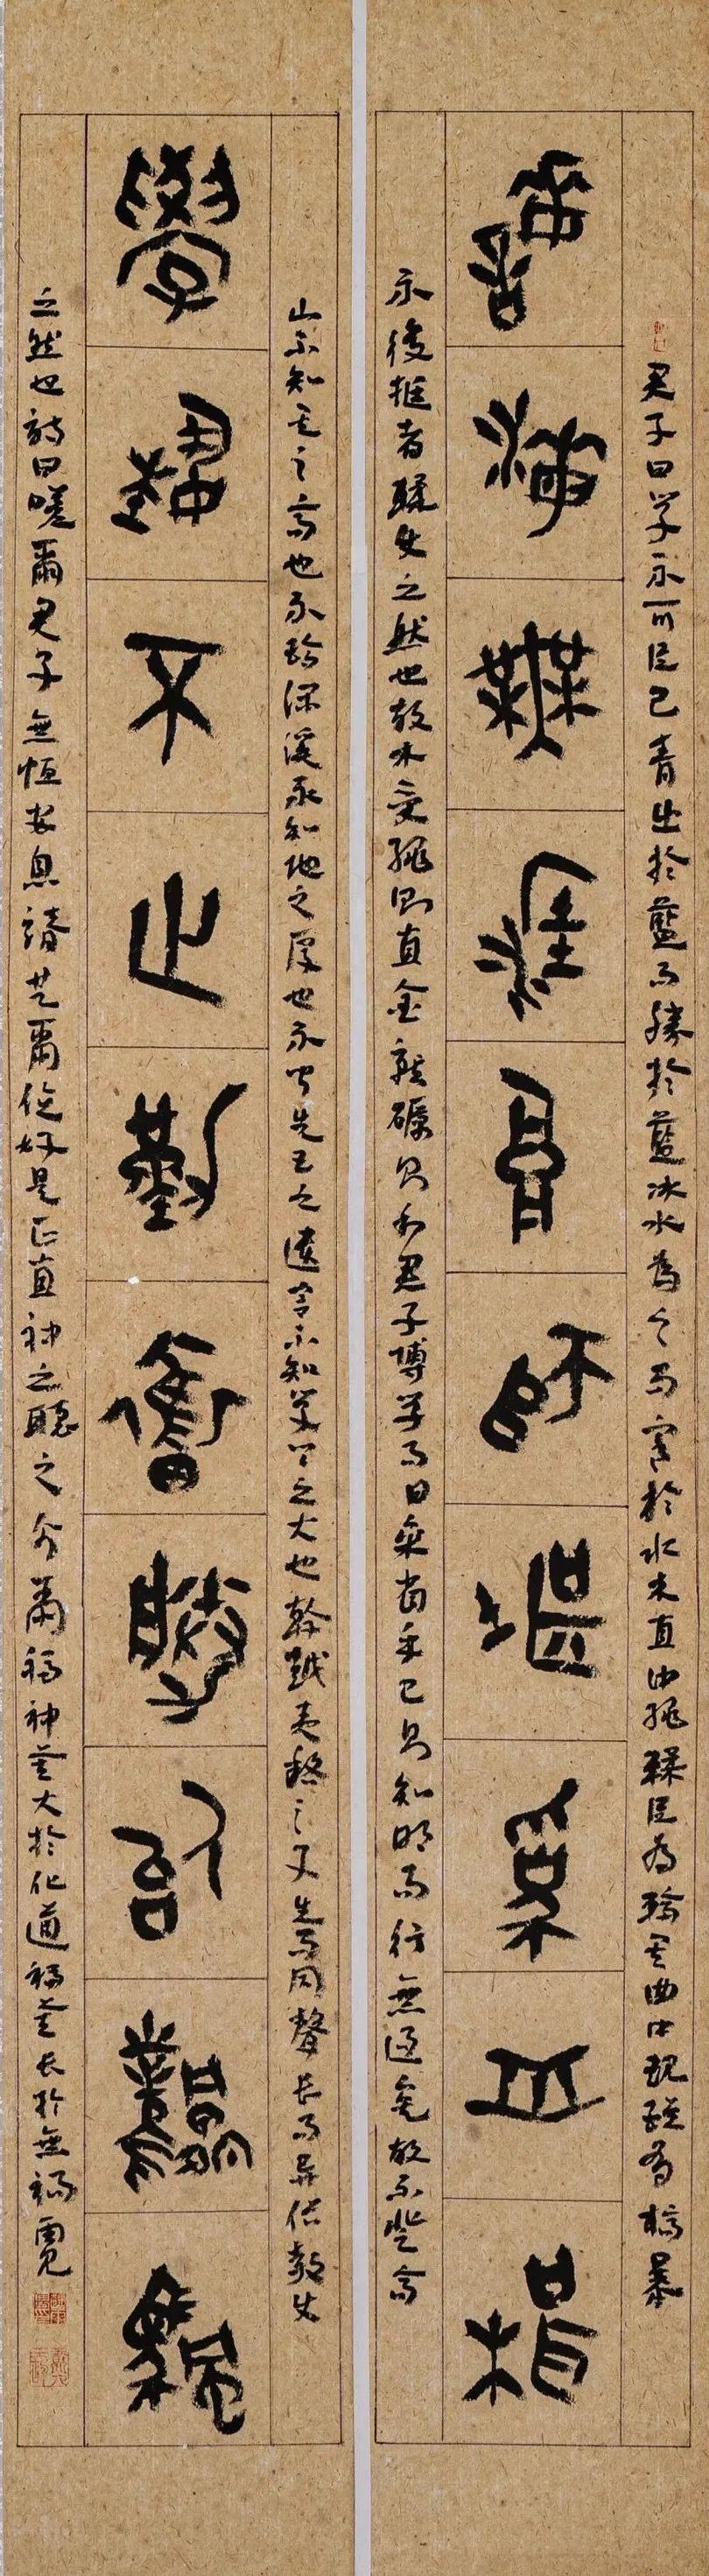 君子曰學不可以已青出於藍而勝於藍冰水為之而寒於水木直中繩輮以為輪其曲中規雖有槁暴
海無涯師堪為楷
不復挺者輮使之然也故木受繩則直金就礪則利君子博學而日參省乎己則知明而行無過矣故不登高
山不知天之高也不臨深溪不知地之厚也不聞先王之遺言不知學問之大也幹越夷貉之子生而同聲長而異俗教使
學歸不止勤
之然也詩曰嗟爾君子無恆安息靖共爾位好是正直神之聽之介爾福神莫大於化道福莫長於無禍